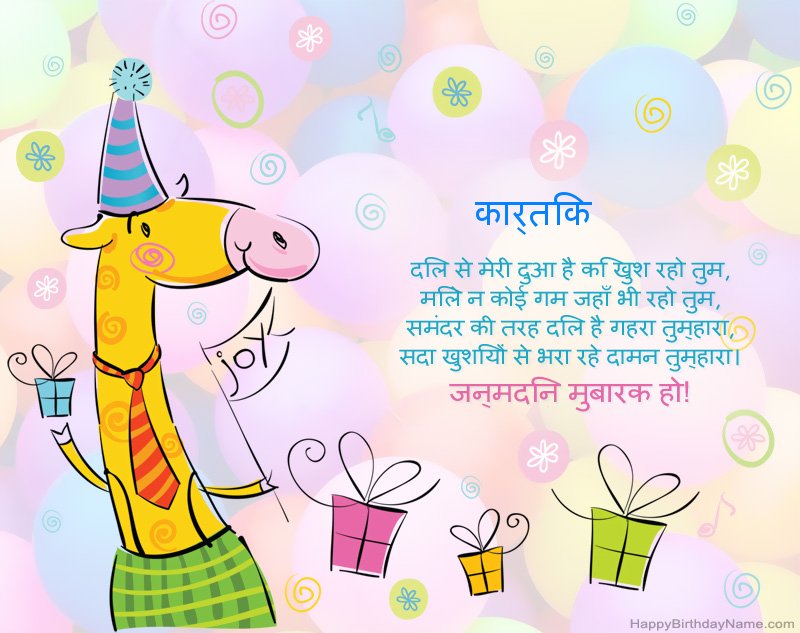 कार्तिक
दिल से मेरी दुआ है कि खुश रहो तुम,
मिले न कोई गम जहाँ भी रहो तुम,
समंदर की तरह दिल है गहरा तुम्हारा,
सदा खुशियों से भरा रहे दामन तुम्हारा।
जन्मदिन मुबारक हो!
joy
HappyBirthdayName.com